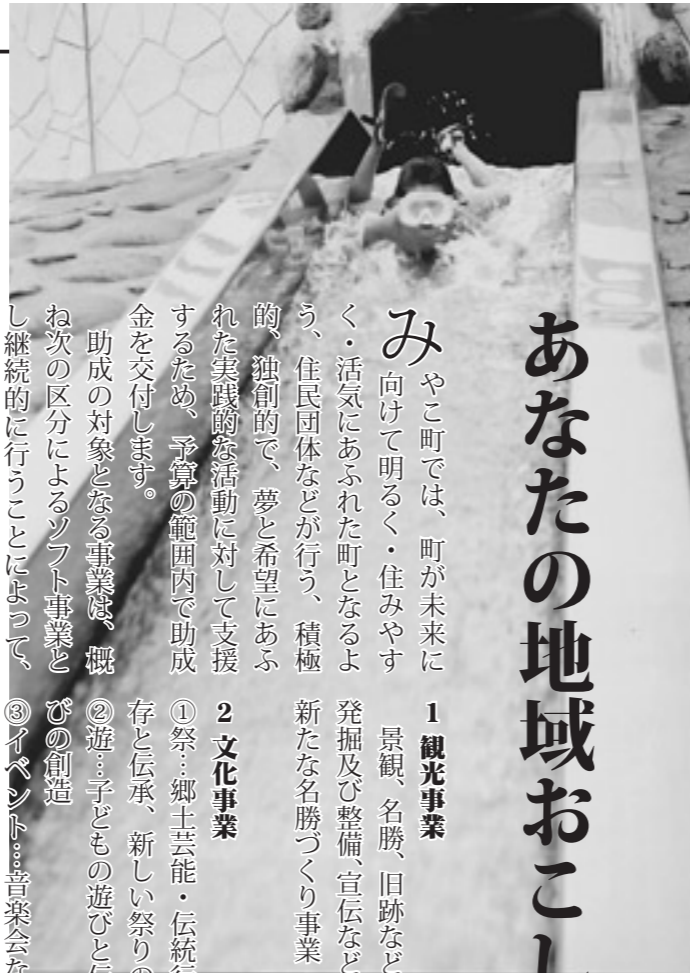 あなたの地域おこし
みやこ町では、町が未来に
向けて明るく・住みやす
く・活気にあふれた町となるよ
う、住民団体などが行う、積極
的、独創的で、夢と希望にあふ
れた実践的な活動に対して支援
するため、予算の範囲内で助成
金を交付します。
助成の対象となる事業は、概
ね次の区分によるソフト事業と
し継続的に行うことによって、
1 観光事業
景観、名勝、旧跡など
発掘及び整備、宣伝など
新たな名勝づくり事業
2 文化事業
①祭…郷土芸能・伝統行
存と伝承、新しい祭りの
②遊…子どもの遊びと伝
びの創造
③イベント…音楽会な